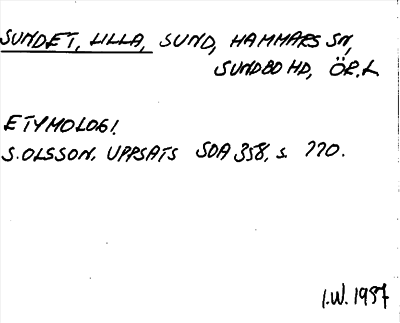 SUNDET, LILLA, SUND, HAMMARS SN,
SUNDBO HD, ÖR.L
ETYMOLOGI.
S. OLSSON. UPPSATS SOA 358, s. 220.
I.W. 1957